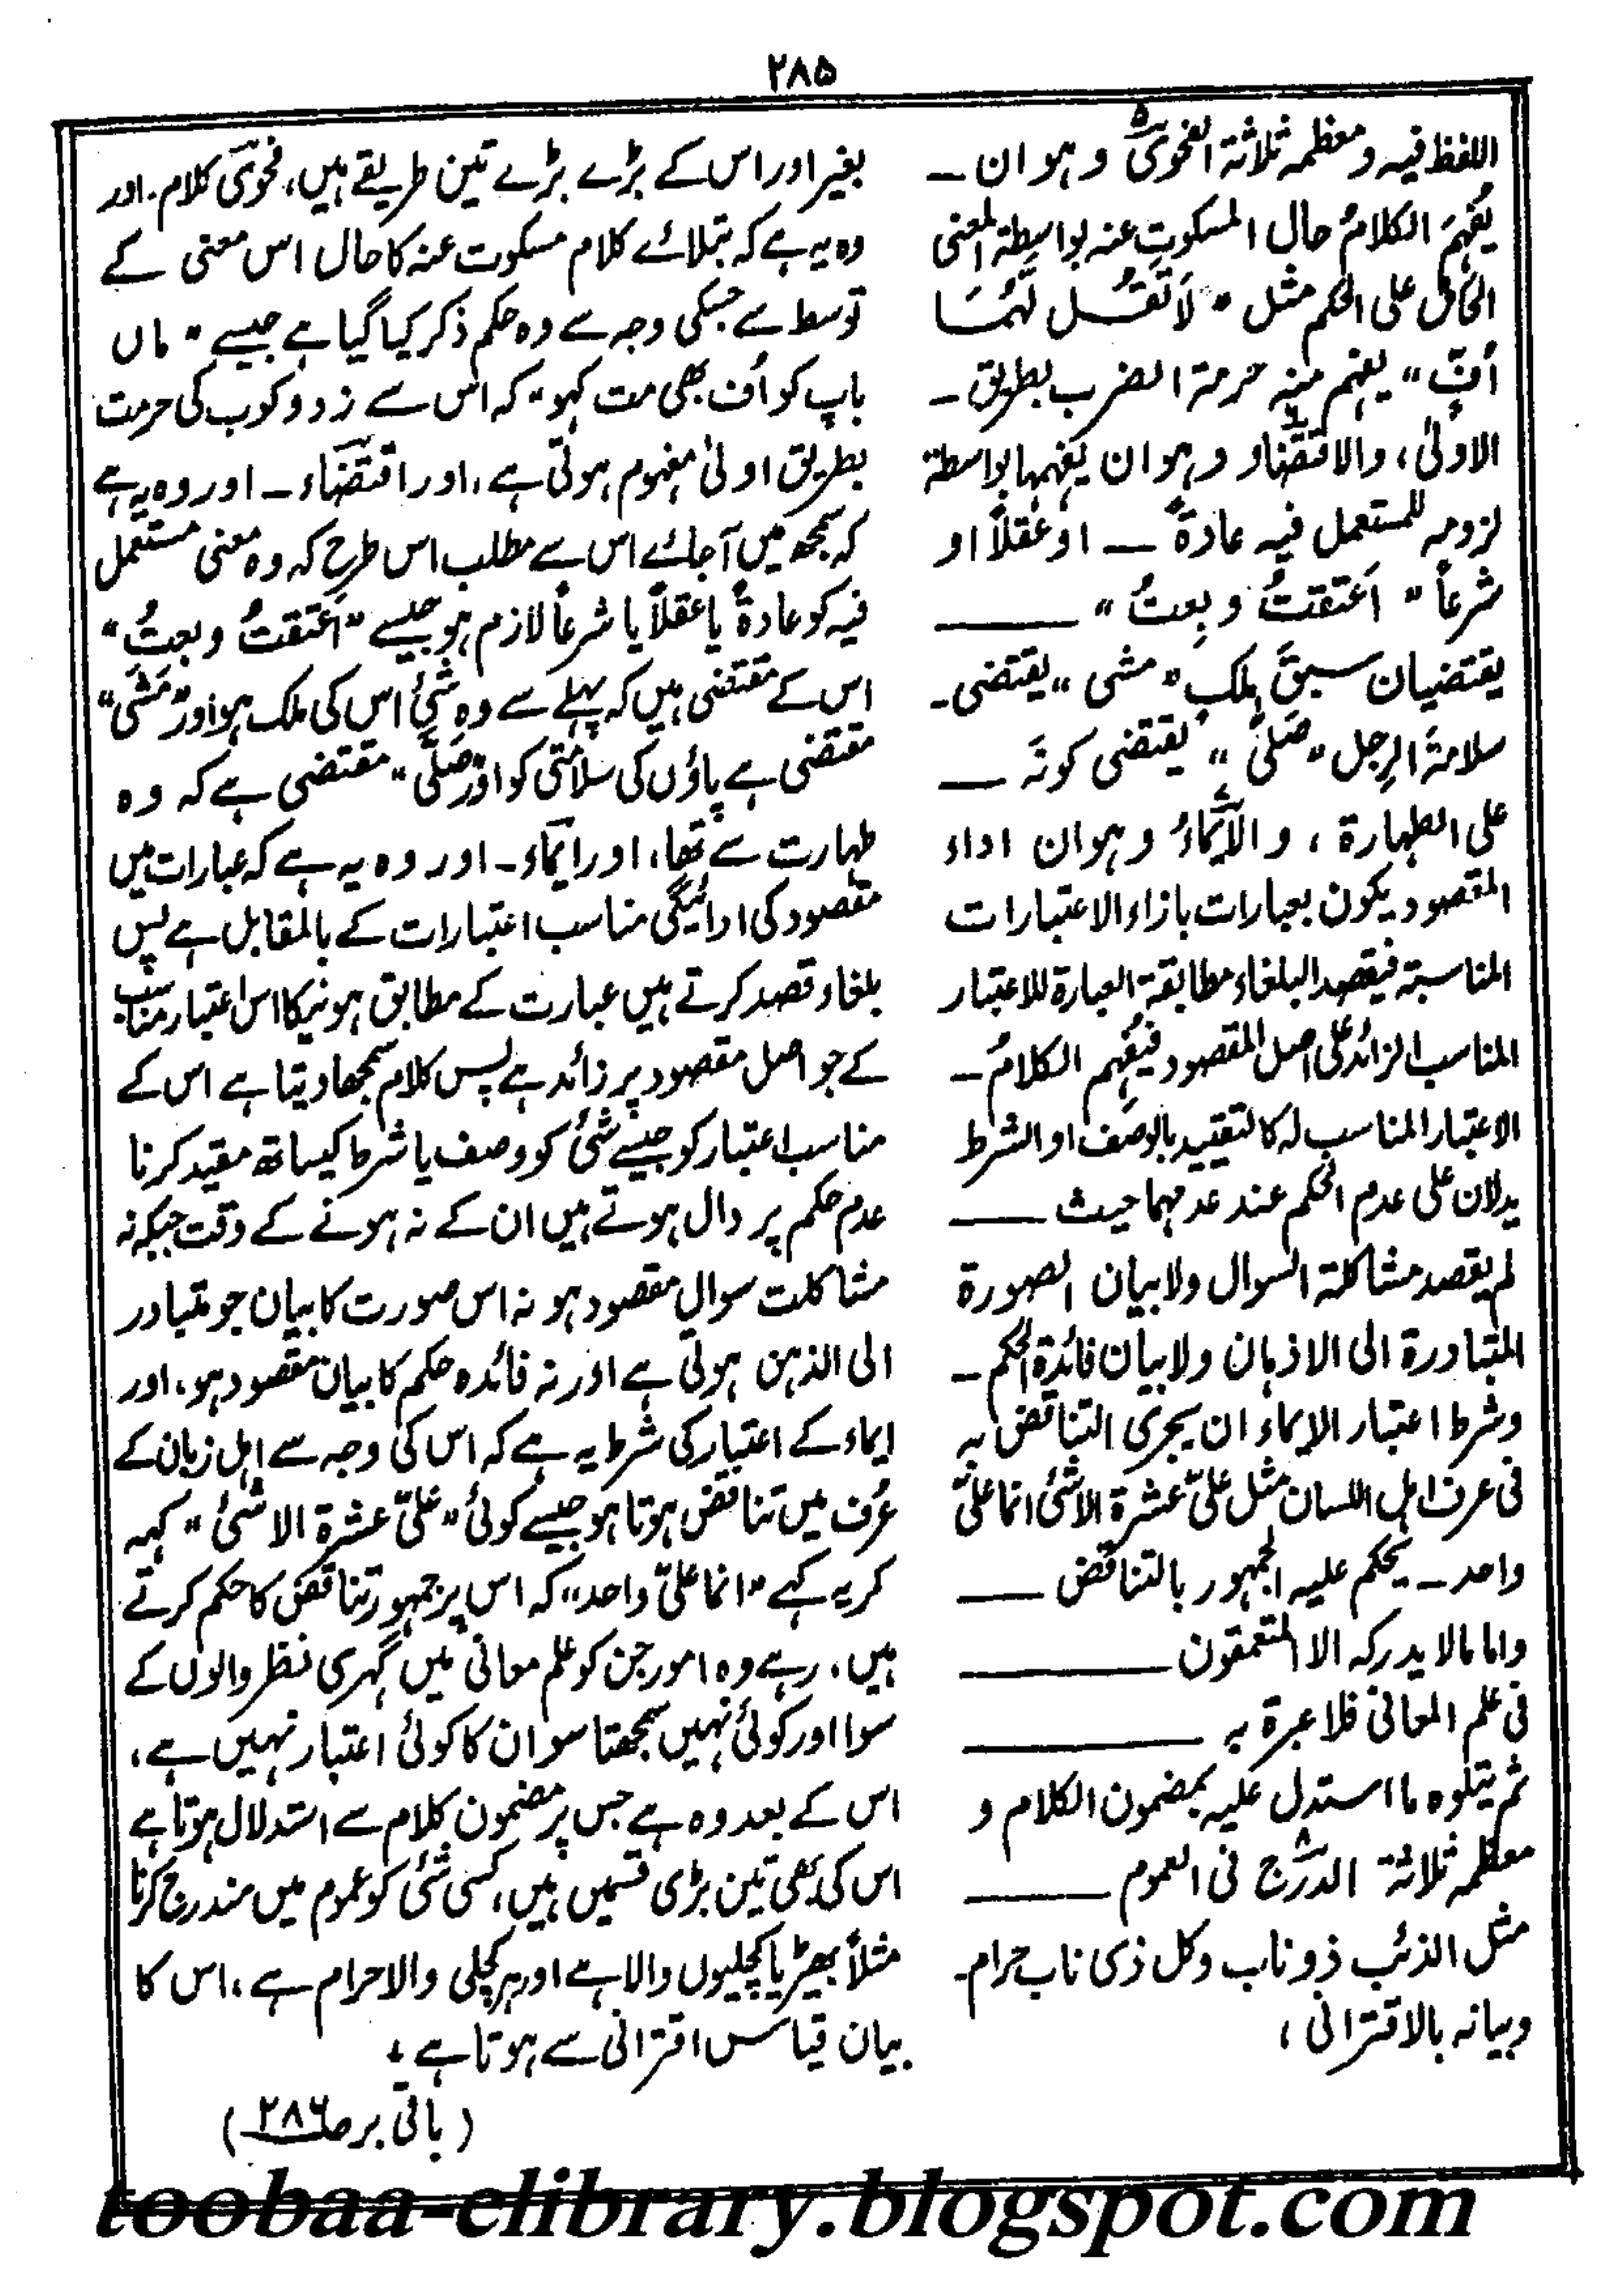 ۲۸۵
اللفظ فیہ ومعظمہ ثلاثة الفحویٰ ۵ وہوان ــ
یُفہِمَ الکلامُ حال المسکوتِ عنہ بواسطۃ المعنی
الحامل علی الحکم مثل "لَا تَقُــل لَّہُمَا
اُفٍّ" یفہم منہ حرمۃ الضرب بطریق ــ
الاولیٰ، والاقتضاء وہوان یفہمہا بواسطۃ
لزومہ للمستعمل فیہ عادۃً ــ او عقلاً او
شرعاً "اَعتقتُ وبِعتُ" ــــــ
یقتضیان سبقَ مِلکٍ "مشی" یقتضی ــ
سلامۃَ الرِجل "صَلّیٰ" یقتضی کونَہ ــ
علی الطہارۃ، والایماءُ وہوان اداء
المقصود یکون بعبارات بازاء الاعتبارات
المناسبۃ فیقصد البلغاء مطابقۃ العبارۃ للاعتبار
المناسب الزائد علی اصل المقصود فیُفہِم الکلامُ ــ
الاعتبار المناسب لہ کالتقیید بالوصف او الشرط
یدلان علی عدم الحکم عند عدمہما حیث ــــ
لم یقصد مشاکلۃ السوال ولا بیان الصورۃ
المتبادرۃ الی الاذہان ولا بیان فائدۃ الحکم ــ
وشرط اعتبار الایماء ان یجری التناقض بہ
فی عرف اہل اللسان مثل علیّ عشرۃ الا شئ انما علیّ
واحد ــ یحکم علیہ الجمہور بالتناقض ــــ
واما مالا یدرکہ الا المتعمقون ـــــــــ
فی علم المعانی فلا عبرۃ بہ ـــــــــ
ثم یتلوہ ما استدل علیہ بمضمون الکلام و
معظمہ ثلاثۃ الدرَج ۸ فی العموم ــــــ
مثل الذئب ذو ناب وکل ذی ناب حرام ــ
وبیانہ بالاقترانی،
بغیر اور اس کے بڑے بڑے تین طریقے ہیں، فحویٰ کلام ۔ اور
وہ یہ ہے کہ بتلائے کلام مسکوت عنہ کا حال اس معنی کے
توسط سے جسکی وجہ سے وہ حکم ذکر کیا گیا ہے جیسے "ماں
باپ کو اُف بھی مت کہو" کہ اس سے زد و کوب کی حرمت
بطریق اولیٰ مفہوم ہوتی ہے، اور اقتضاء ــ اور وہ یہ ہے
کہ سمجھ میں آجائے اس سے مطلب اس طرح کہ وہ معنی مستعمل
فیہ کو عادۃً یا عقلاً یا شرعاً لازم ہو جیسے "اَعتقتُ وبعتُ"
اس کے مقتضی ہیں کہ پہلے سے وہ شئ اس کی ملک ہو اور "مَشَیٰ"
مقتضی ہے پاؤں کی سلامتی کو اور "صَلّیٰ" مقتضی ہے کہ وہ
طہارت سے تھا، اور ایماء ــ اور وہ یہ ہے کہ عبارات میں
مقصود کی ادائیگی مناسب اعتبارات کے بالمقابل ہے پس
بلغاء قصد کرتے ہیں عبارت کے مطابق ہونیکا اس اعتبار مناسب
کے جو اصل مقصود پر زائد ہے پس کلام سمجھا دیتا ہے اس کے
مناسب اعتبار کو جیسے شئ کو وصف یا شرط کیساتھ مقید کرنا
عدم حکم پر دال ہوتے ہیں ان کے نہ ہونے کے وقت جبکہ نہ
مشاکلت سوال مقصود ہو نہ اس صورت کا بیان جو متبادر
الی الذہن ہوتی ہے اور نہ فائدہ حکم کا بیان مقصود ہو، اور
ایماء کے اعتبار کی شرط یہ ہے کہ اس کی وجہ سے اہل زبان کے
عُرف میں تناقض ہوتا ہو جیسے کوئی "علیّ عشرۃ الا شئ" کہہ
کر یہ کہے "انما علیّ واحد" کہ اس پر جمہور تناقض کا حکم کرتے
ہیں، رہے وہ امور جن کو علم معانی میں گہری نظر والوں کے
سوا اور کوئی نہیں سمجھتا سو ان کا کوئی اعتبار نہیں ہے،
اس کے بعد وہ ہے جس پر مضمون کلام سے استدلال ہوتا ہے
اس کی بھی تین بڑی قسمیں ہیں، کسی شئ کو عموم میں مندرج کرنا
مثلاً بھیڑیا کچلیوں والا ہے اور ہر کچلی والا حرام ہے، اس کا
بیان قیاس اقترانی سے ہوتا ہے،
(باقی برصـ۲۸۶)
toobaa-elibrary.blogspot.com